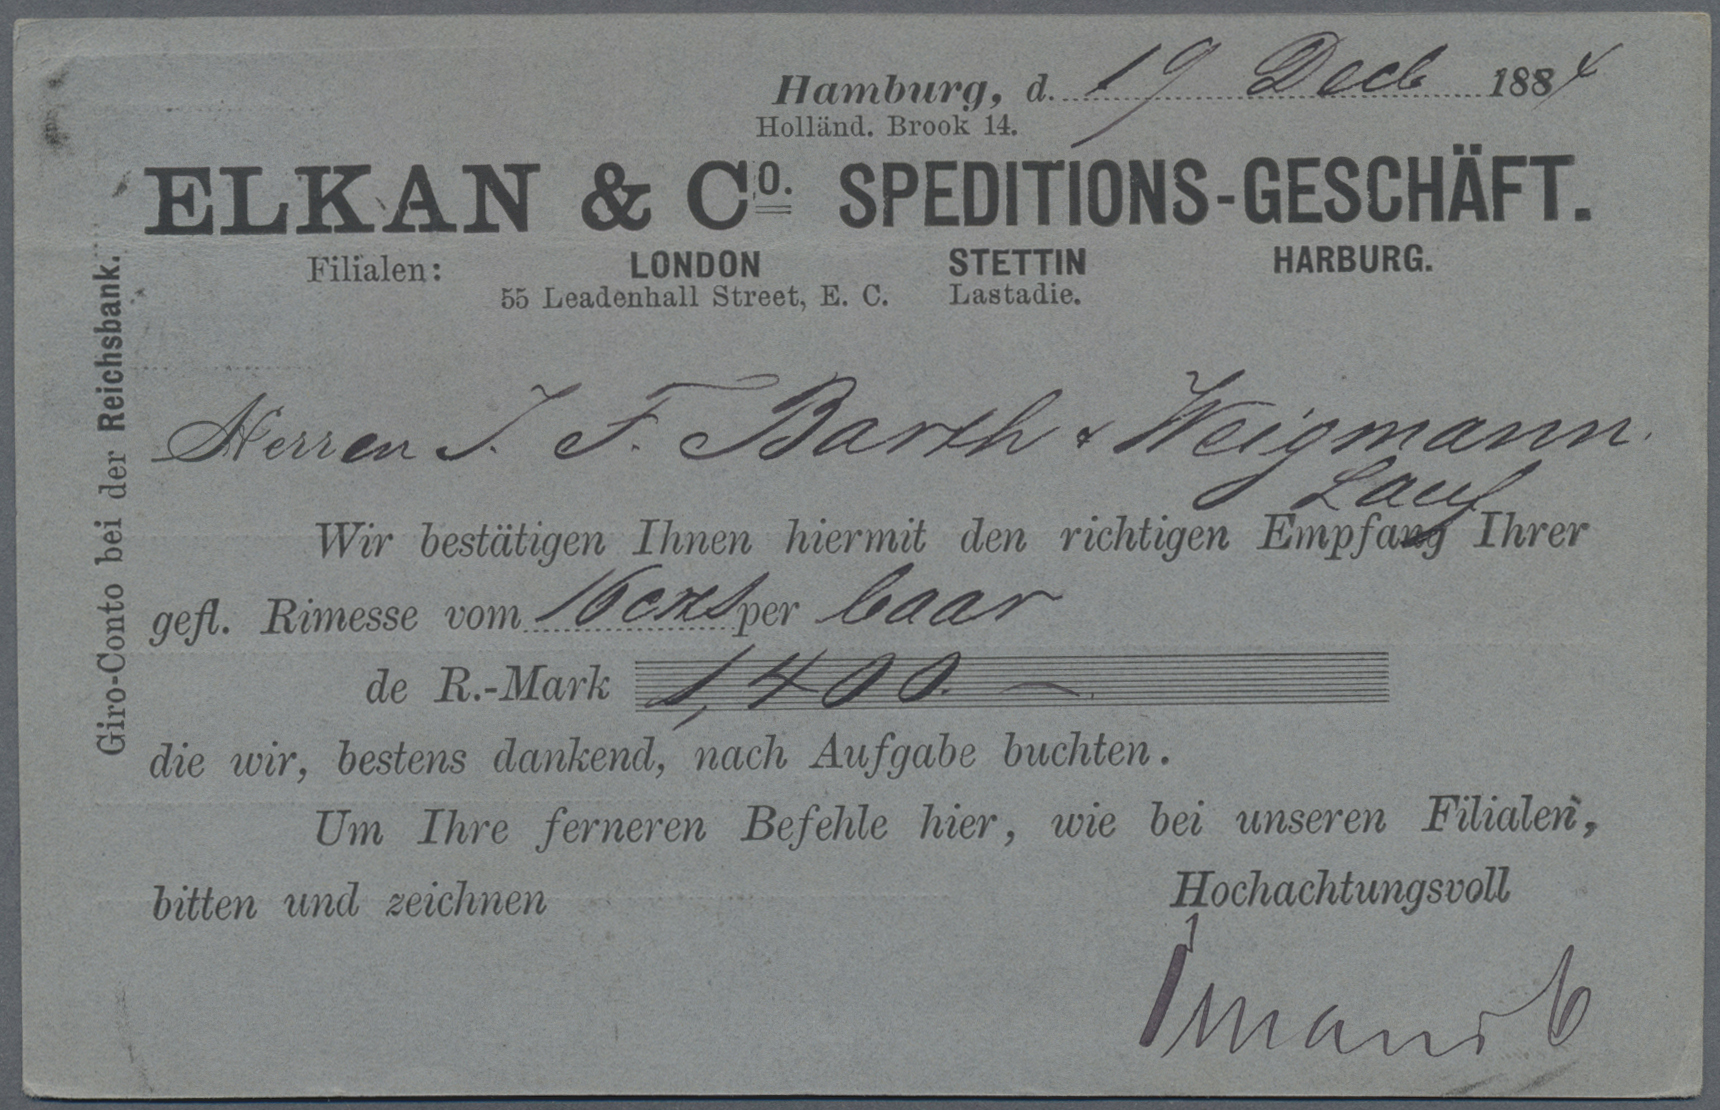 Hamburg, d. 19 Decb 1884
Holländ. Brook 14.
ELKAN & Co. SPEDITIONS-GESCHÄFT.
Filialen: LONDON STETTIN HARBURG.
55 Leadenhall Street, E. C. Lastadie.
Giro-Conto bei der Reichsbank.
Herren J. F. Barth & Weigmann.
Lauf
Wir bestätigen Ihnen hiermit den richtigen Empfang Ihrer
gefl. Rimesse vom 16 crts per baar
de R.-Mark 1,400. —
die wir, bestens dankend, nach Aufgabe buchten.
Um Ihre ferneren Befehle hier, wie bei unseren Filialen,
bitten und zeichnen Hochachtungsvoll